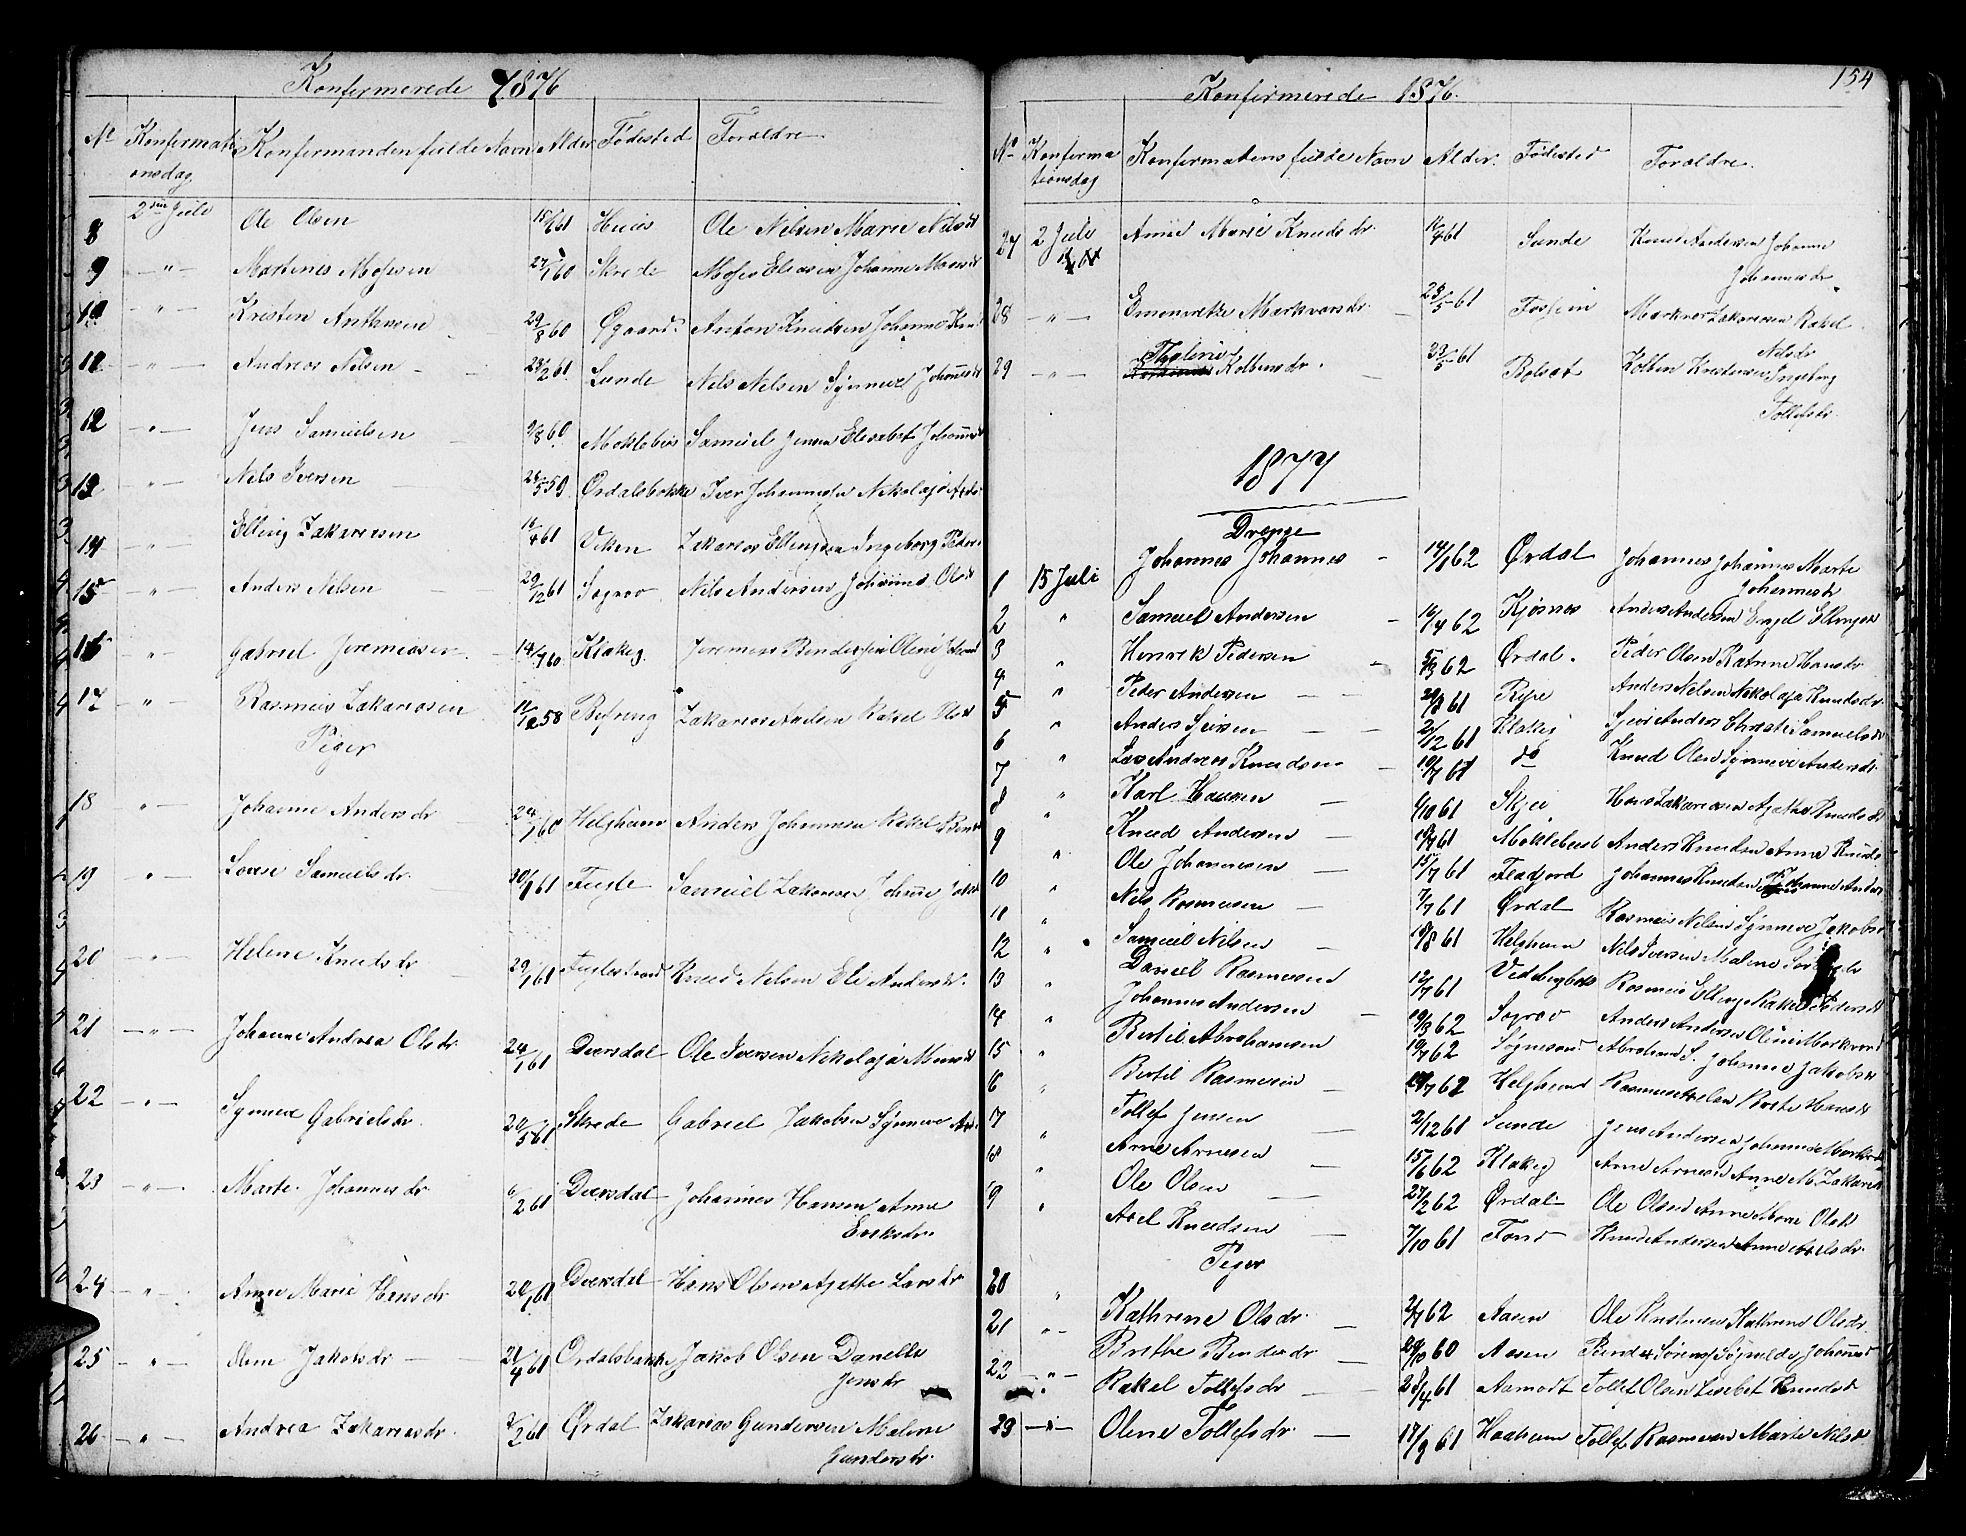 Konfermerede 1876
Nº Konfermati Konfermanden fulde Navn Alder Födested Foraldre
onsdag
8 2den Juli Ole Olsen 15/1 61 Huus Ole Nilsen Marie Nilsdt
9 — " — Martines Mosesen 27/1 60 Skrede Moses Eliasen Johanne Monsdt
10 " — Kristen Antonsen 29/8 60 Øgaard Anton Knudsen Johanne
11 — " — Andreas Nilsen 23/2 61 Sunde Nils Nilsen Synneve Johannesdt
12 — " — Jens Samuelsen 9/8 60 Meklebus Samuel Jensen Elisabet Johannesdt
13 " — Nils Iversen 24/5 59 Ørdalsbakke Iver Johannesen Nikolaja
14 " — Elling Zakariasen 16/4 61 Viken Zakarias Ellingsen Ingeborg Peders
15 " — Anders Nilsen 29/12 61 Sogrov Nils Andersen Johanne Olsdt
16 " — Gabriel Jeremiasen 14/7 60 Klakeg Jeremias Bendixsen Oline
17 " — Rasmus Zakariasen 11/12 58 Befreng Zakarias Rakel Olsdt
Piger
18 " — Johanne Andersdr 24/1 60 Helgheim Anders Johannesen Rakel
19 " — Lovise Samuelsdr. 30/1 61 Fugle Samuel Zakariasen Johanne
20 " — Helene Knudsdr 29/1 61 Fuglestrand Knud Nilsen Eli Andersdr.
21 — " — Johanne Andrea Olsdr 24/1 61 Dvergsdal Ole Iversen Nikolaja Monsdt
22 — " — Synneve Gabrielsdr. 20/5 61 Skrede Gabriel Jakobsen Synneve
23 — " — Marte Johannesdr 6/2 61 Dversdal Johannes Hansen Anne
Eriksdr.
24 — " — Anne Marie Hansdr 20/1 61 Dversdal Hans Olsen Agatte Larsdr
25 — " — Oline Jakobsdr — 21/4 61 Ordalsbakke Jakob Olsen Danelle
Jensdr
26 — " — Andrea Zakariasdr. 2/2 61 Ørdal Zakarias Gundersen Malene
Gundersdr.
154
Konfirmerede 1876.
Nº Konferma Konfermatens fulde Navn Alder. Födested Foraldre.
tionsdag
27 2 Juli Anne Marie Knudsdr. 16/4 61 Sunde Knud Andersen Johanne
Johannesdr.
28 — " — Markvorsdr. 23/5 61 Markvor Zakariasen Rakel
Nilsdr
29 — " — Kolbensdr. 23/5 61 Bolset Kolben Kristensen Ingeborg
Tollefsdr.
1877
Drenge
1 15 Juli Johannes Johannes - 14/1 62 Ørdal Johannes Johannes Marte
Johannesdt
2 " Samuel Andersen - 16/4 62 Kjøsnes Anders Andersen Engel Ellingsdt
3 " Henrik Pedersen - 5/3 62 Ørdal. Peder Olsen Katrine Hansdr
4 " Peder Andersen — 20/8 61 Rype Anders Nilsen Nikolaja Knudsdr.
5 " Anders Sjursen — 2/12 61 Klakeg Sjur Anders Christi Samuelsdt
6 " Lars Andreas Knudsen — 10/7 61 do Knud Olsen Synneve Andersdr.
7 " Karl Hansen — 6/10 61 Skjei Hans Zakariasen Agathe Knudsdt
8 " Knud Andersen — 19/7 61 Meklebust Anders Knudsen Anne Knuds
9 " Ole Johannesen — 15/7 61 Flatjord Johannes Knudsen Johanne Anders
10 " Nils Rasmusen — 7/7 61 Ørdal Rasmus Nilsen Synneve Jakobs
11 " Samuel Nilsen — 18/8 61 Helgheim Nils Iversen Malene
12 " Daniel Rasmusen 12/7 61 Vedbergbak Rasmus Elling Rakel Pedersdt
13 " Johannes Andersen — 19/3 62 Sogrov Anders Andersen Oline Markvord
14 " Bertil Abrahamsen 19/7 62 Søgnesand Abraham S. Johanne Jakobsdt
15 " Bertil Rasmusen — 19/7 62 Helgheim Rasmus Brite Hansdt
6 " Tollef Jensen — 2/12 61 Sunde Jens Andersen Johanne Markvor
7 " Arne Arnesen — 15/6 62 Klakeg Arne Arnesen Anne M. Zakarisdt
8 " Ole Olsen — 27/2 62 Ørdal Ole Olsen Anne Marie Olsdt
9 " Axel Knudsen — 7/10 61 Fond Knud Andersen Anne Axelsdr.
Piger
20 " Kathrine Olsdr. — 2/7 62 Aasen Ole Kristensen Kathrine Olsdr.
21 " — Brithe Bendixdr — 29/10 60 Aasen Bendix Sørens Søgnelde Johannesd
22 — " — Rakel Tollefsdr — 28/4 61 Aamodt Tollef Olsen Lisebet Knudsdt
29 — " — Oline Tollefsdr. — 17/9 61 Haaheim Tollef Rasmusen Marte Nilsdt